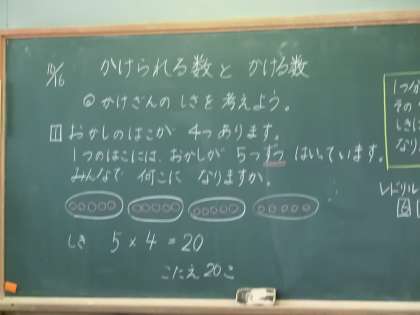 10/16
かけられる数と かける数
◎ かけざんの しきを 考えよう。
1 おかしのはこが 4つあります。
1つのはこには、おかしが 5つずつ はいっています。
みんなで 何こに なりますか。
しき 5×4=20
こたえ 20こ
1つ分
その
しきに
なり